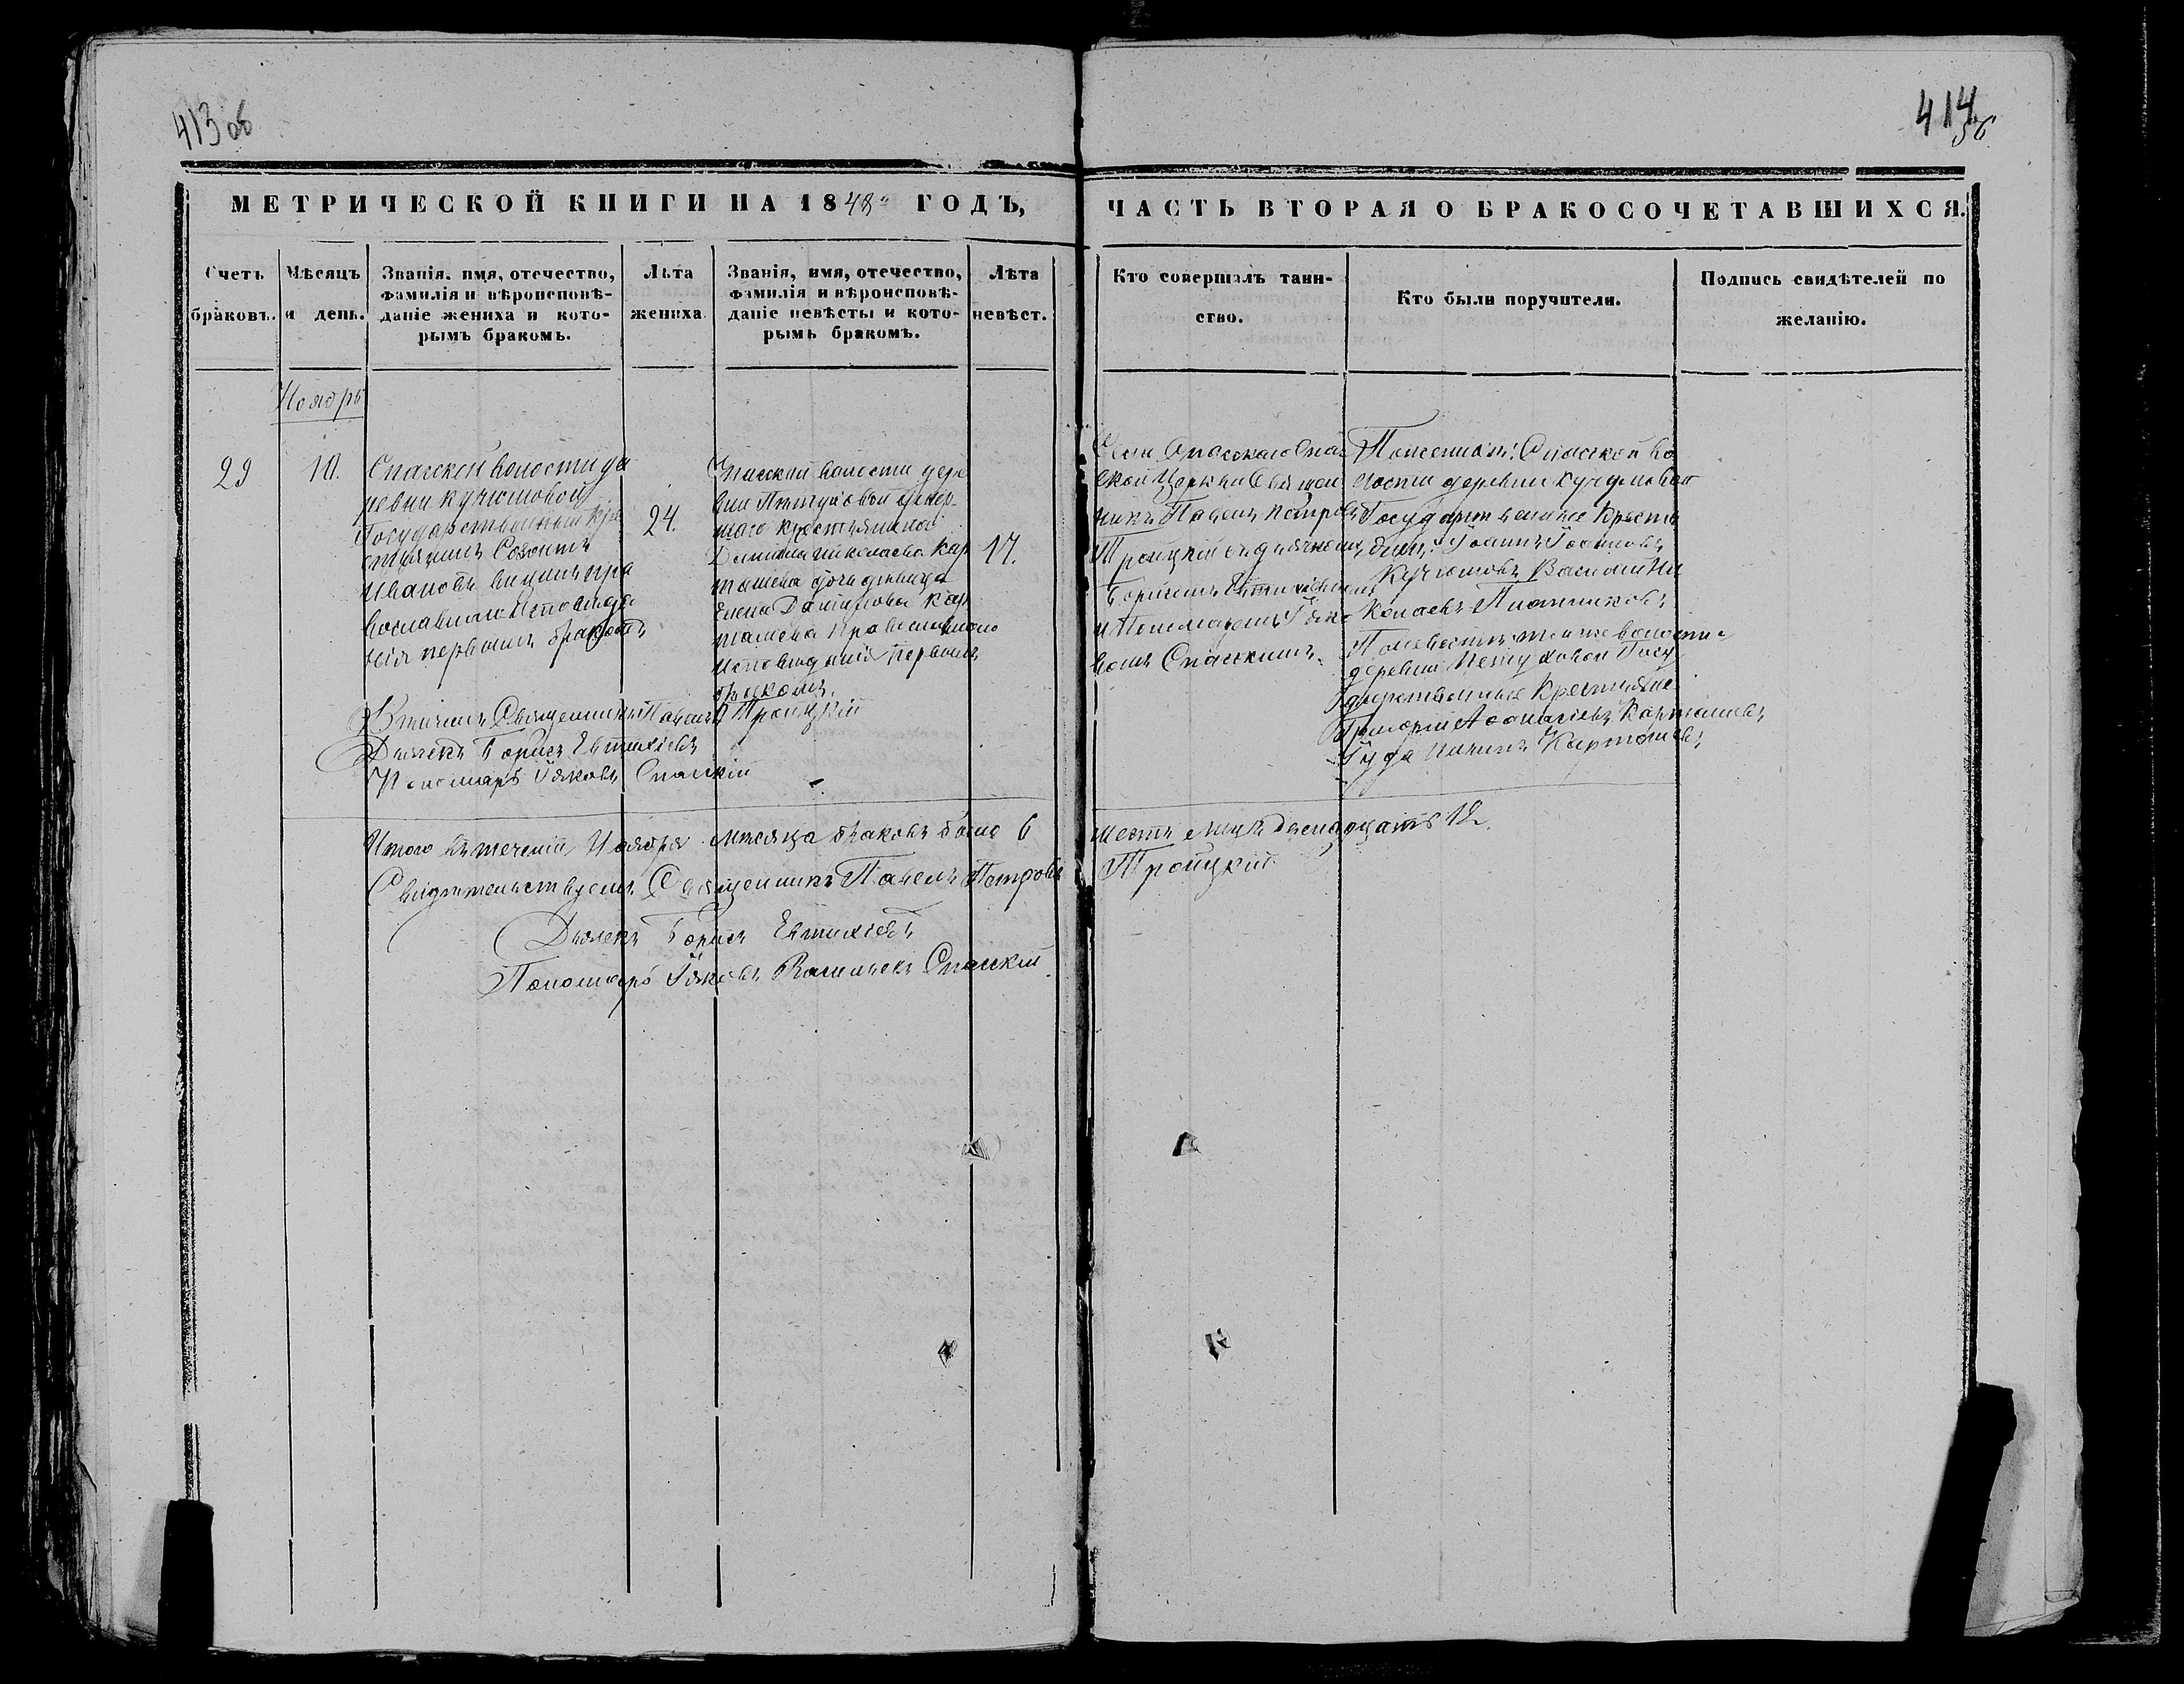 413 об
414
56
МЕТРИЧЕСКОЙ КНИГИ НА 1848й ГОДЪ,
ЧАСТЬ ВТОРАЯ О БРАКОСОЧЕТАВШИХСЯ.
Счетъ браковъ.
Мѣсяцъ и день.
Званія, имя, отечество,
фамилія и вѣроисповѣ-
даніе жениха и кото-
рымъ бракомъ.
Лѣта
жениха
Званія, имя, отечество,
фамилія и вѣроисповѣ-
даніе невѣсты и кото-
рымъ бракомъ.
Лѣта
невѣст.
Кто совершалъ таин-
ство.
Кто были поручители.
Подпись свидѣтелей по
желанію.
Ноябрь
29
10.
Спасской волости де
ревни Кучюмовой
Государственный кре
стьянинъ Созонтъ
Ивановъ пра
вославнаго исповѣда
нія первымъ бракомъ
24.
Спасской волости дере
вни Петуховой
крестьянина
Данила Николаева Кар
ташева дочь девица
Елена Данилова Кар
ташева православнаго
исповѣданія первымъ
бракомъ.
17.
Села Спасскаго Спас
ской Церкви Священ
никъ Павелъ Петровъ
Троицкій съ дьячкомъ
Борисомъ Евтихіевымъ
и Пономаремъ Іяко
вомъ Спасскимъ.
По женихѣ: Спасской во
лости деревни Кучумовой
Государственные Кресть
яне: Іоаннъ Іоанновъ
Кучюмовъ Василій Ни
колаевъ Плотниковъ
По невѣстѣ: той же волости
деревни Петуховой Госу
дарственные Крестьяне
Григорій Афанасіевъ Карташевъ
Іуда Карташевъ
Священникъ Павелъ Троицкій
Дьячекъ Борисъ Евтихіевъ
Пономарь Іяковъ Спасскій
Итого въ теченіи Ноября мѣсяца браковъ было 6 шесть двенадцать 12.
Свидѣтельствуемъ Священникъ Павелъ Петровъ Троицкій
Дьячекъ Борисъ Евтихіевъ
Пономарь Іяковъ Васильевъ Спасскій